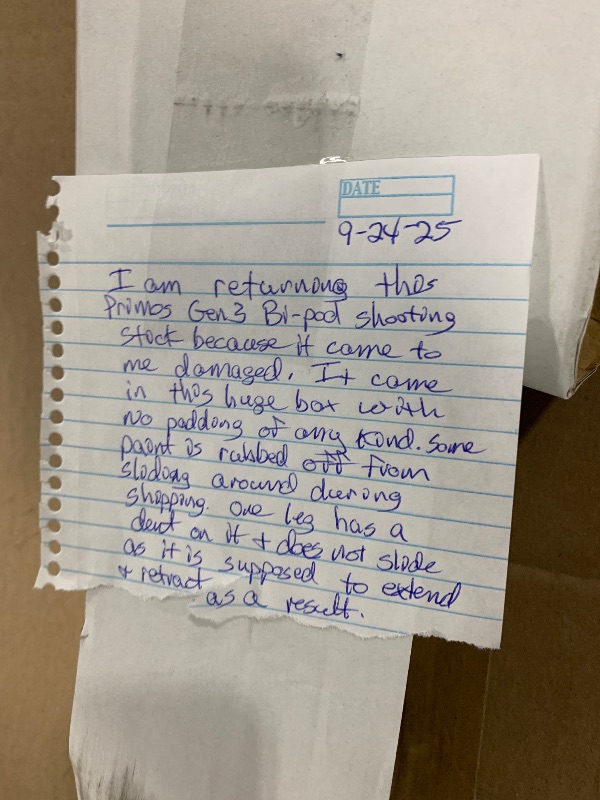 DATE
9-24-25
I am returning this
Primos Gen3 Bi-pod shooting
stick because it came to
me damaged. It came
in this huge box with
No padding of any kind. Some
paint is rubbed off from
sliding around during
shipping. One leg has a
dent on it + does not slide
as it is supposed to extend
+ retract
as a result.